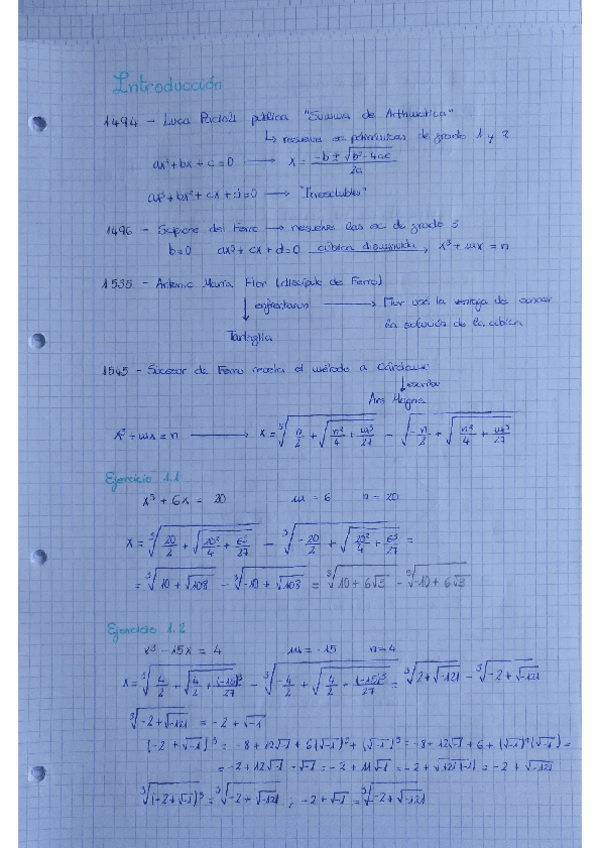 Introducción
1494 - Luca Pacioli publica "Summa de Arithmetica"
↳ resuelve ec polinómicas de grado 1 y 2
ax²+bx+c=0 → x = (-b ± √(b²-4ac))/2a
ax³+bx²+cx+d=0 → "Irresolubles"
1496 - Scipone del Ferro → resuelve las ec de grado 3
b=0 ax³+cx+d=0 cúbica disminuida, x³+mx=n
1535 - Antonio María Fior (discípulo de Ferro)
↓ enfrentaron → Fior usó la ventaja de conocer
Tartaglia la solución de la cúbica
1545 - Sucesor de Ferro revela el método a Cardano
↓ escribe
Ars Magna
x³+mx=n → x = ∛(n/2 + √(n²/4 + m³/27)) - √(-n/2 + √(n²/4 + m³/27))
Ejercicio 1.1
x³ + 6x = 20 m = 6 n = 20
x = ∛(20/2 + √(20²/4 + 6³/27)) - ∛(-20/2 + √(20²/4 + 6³/27)) =
= ∛(10 + √108) - ∛(-10 + √108) = ∛(10 + 6√3) - ∛(-10 + 6√3)
Ejercicio 1.2
x³ - 15x = 4 m = -15 n = 4
∛(-2 + √-121) = -2 + √-1
(-2 + √-1)³ = -8 + 12√-1 + 6(√-1)² + (√-1)³ = -8 + 12√-1 + 6 + (√-1)²(√-1) =
= -2 + 12√-1 - √-1 = -2 + 11√-1 = -2 + √(121(-1)) = -2 + √-121
∛(-2+√-1)³ = ∛(-2 + √-121) , -2 + √-1 = ∛(-2 + √-121)